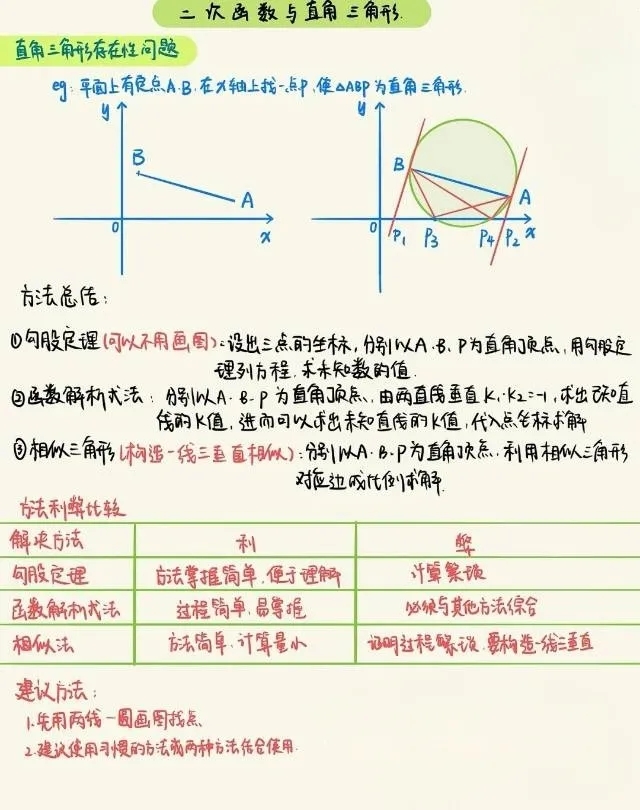 二次函数与直角三角形.
直角三角形存在性问题
eg: 平面上有定点A.B.在x轴上找一点P,使△ABP为直角三角形.
y
B
A
0
x
y
B
A
0
P₁
P₃
P₄
P₂
x
方法总结:
①勾股定理(可以不用画图):设出三点的坐标,分别以A.B.P为直角顶点,用勾股定
理列方程.求未知数的值.
②函数解析式法:分别以A.B.P为直角顶点,由两直线垂直K₁·K₂=-1,求出已知直
线的K值,进而可以求出未知直线的K值,代入点坐标求解
③相似三角形(构造一线三垂直相似):分别以A.B.P为直角顶点.利用相似三角形
对应边成比例求解.
方法利弊比较
解决方法 利 弊
勾股定理 方法掌握简单,便于理解 计算繁琐
函数解析式法 过程简单,易掌握 必须与其他方法综合
相似法 方法简单,计算量小 证明过程繁琐,要构造一线三垂直
建议方法:
1.先用两线一圆画图找点
2.建议使用习惯的方法或两种方法结合使用.